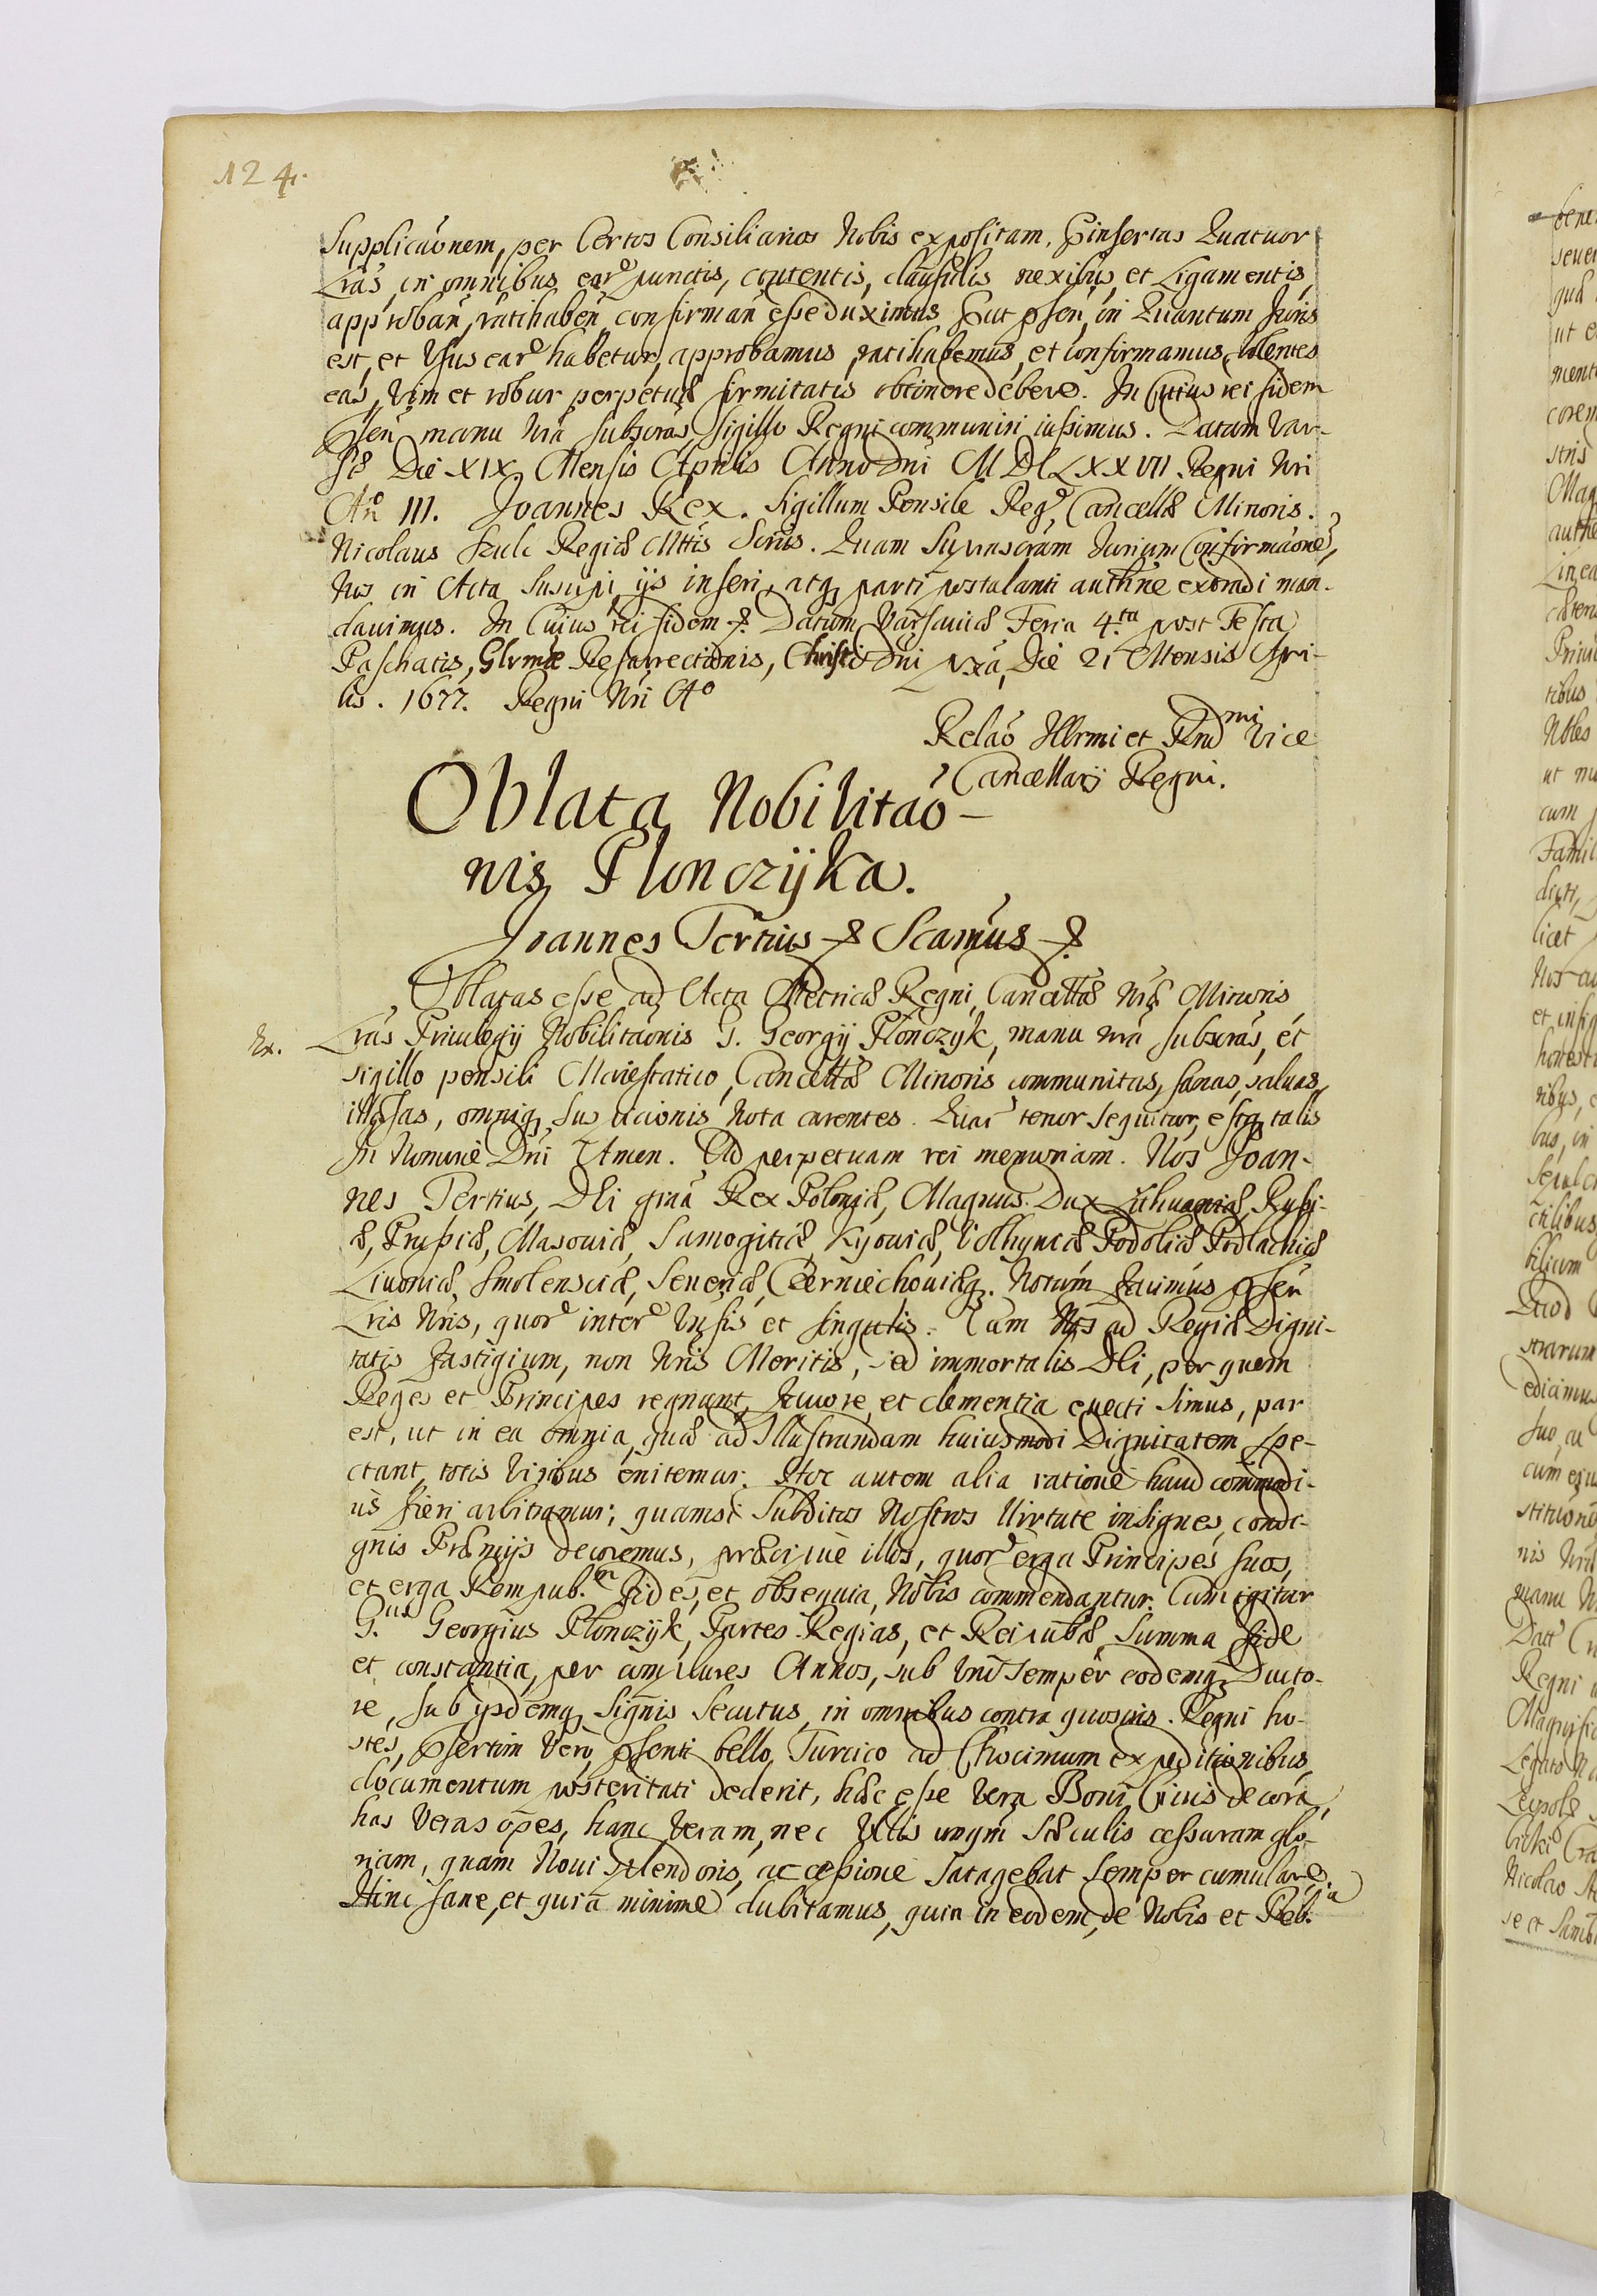 124.
Supplicaönem, per Certos Consiliarios Nobis expositam, Pinsertas Quatuor
Lräs, in omnibus ear punctis, contentis, clausulis nexibus, et Ligamentis,
approban, ratihaben, confirman esse duximus Put psen, in Quantum Juris
est, et Usus ear habetur, approbamus, ratihabemus, et confirmamus, Volentes
eas, Vim et robur perpetuæ firmitatis obtinere debere. In Cuius rei fidem
psen manu Nra subscras, Sigillo Regni communiri iussimus. Datum Var-
sæ Die XIX. Mensis Aprilis Anno Dni MDCLXXVII. Regni Nri
Ano III. Joannes Rex. Sigillum Pensile Reg, Cancellæ Minoris.
Nicolaus Regiæ Mttis Scrius. Quam Suprascram Jurium Confirmaone,
Nos in Acta Suscipi, ijs inseri, atq parti postulanti authne extradi man-
davimus. In Cuius rei fidem &. Datum Varsaviæ Feria 4.ta post Festa
Paschatis, Glrmæ Resurrectionis, Christi Dni pxa, Die 21 Mensis Apri-
lis. 1677. Regni Nri Ao
Relaö Illrmi et Rnd mi Vice
Cancellarij Regni.
Oblata Nobilitaö-
nis Plonczijka.
Joannes Tertius & Scamus &
Oblatas esse ad Acta Metricæ Regni, Cancellæ Nræ Minoris,
Ex. Lras Privilegij Nobilitaonis G. Georgij Plonczyk, manu nra subscras, et
sigillo pensili Maiestatico, Cancellæ Minoris communitas, sanas, salvas,
illæsas, omniq suspicionis nota carentes. Quar tenor sequitur, estq talis
In Nomine Dni Amen. Ad perpetuam rei memoriam. Nos Joan-
nes Tertius, DEi gräa Rex Poloniæ, Magnus Dux Lithuaniæ, Russi-
æ, Prussiæ, Masoviæ, Samogitiæ, Kijoviæ, Volhyniæ Podoliæ Podlachiæ
Livoniæ, Smolensciæ, Severiæ, Czerniechoviæq. Notum facimus psen
Lris Nris, quor inter Vnsis et singulis. Cum Nos ad Regiæ Digni-
tatis fastigium, non Nris Meritis, sed immortalis DEi, per quem
Reges et Principes regnant, favore, et clementia evecti simus, par
est, ut in ea omnia, quæ ad Illustrandam huiusmodi Dignitatem spe-
ctant, totis Viribus enitemur. Hoc autem alia ratione haud commodi-
us fieri arbitramur; quam si Subditos Nostros Virtute insignes, condi-
gnis Præmijs decoremus, præcipuè illos, quor erga Principes suos,
et erga Rempub.m fides, et obsequia, Nobis commendantur. Cum igitur
G.us Georgius Plonczijk, Partes Regias, et Reipubæ, Summa fide
et constantia, per complures Annos, sub Uno semper eodemq Ducto-
re, sub ijsdemq Signis Secutus, in omnibus contra quosvis Regni ho-
stes, psertim Verò psenti bello, Turcico ad Chocimum expeditionibus,
documentum posteritati dederit, hæc esse Vera Boni Civis decora,
has Veras opes, hanc Veram, nec Ullis unqm Sæculis cessuram glo-
riam, quam Novi splendoris, accessione Satagebat semper cumulare.
Hinc sane, et quia minime dubitamus, quin in eodem, de Nobis et Reb.a